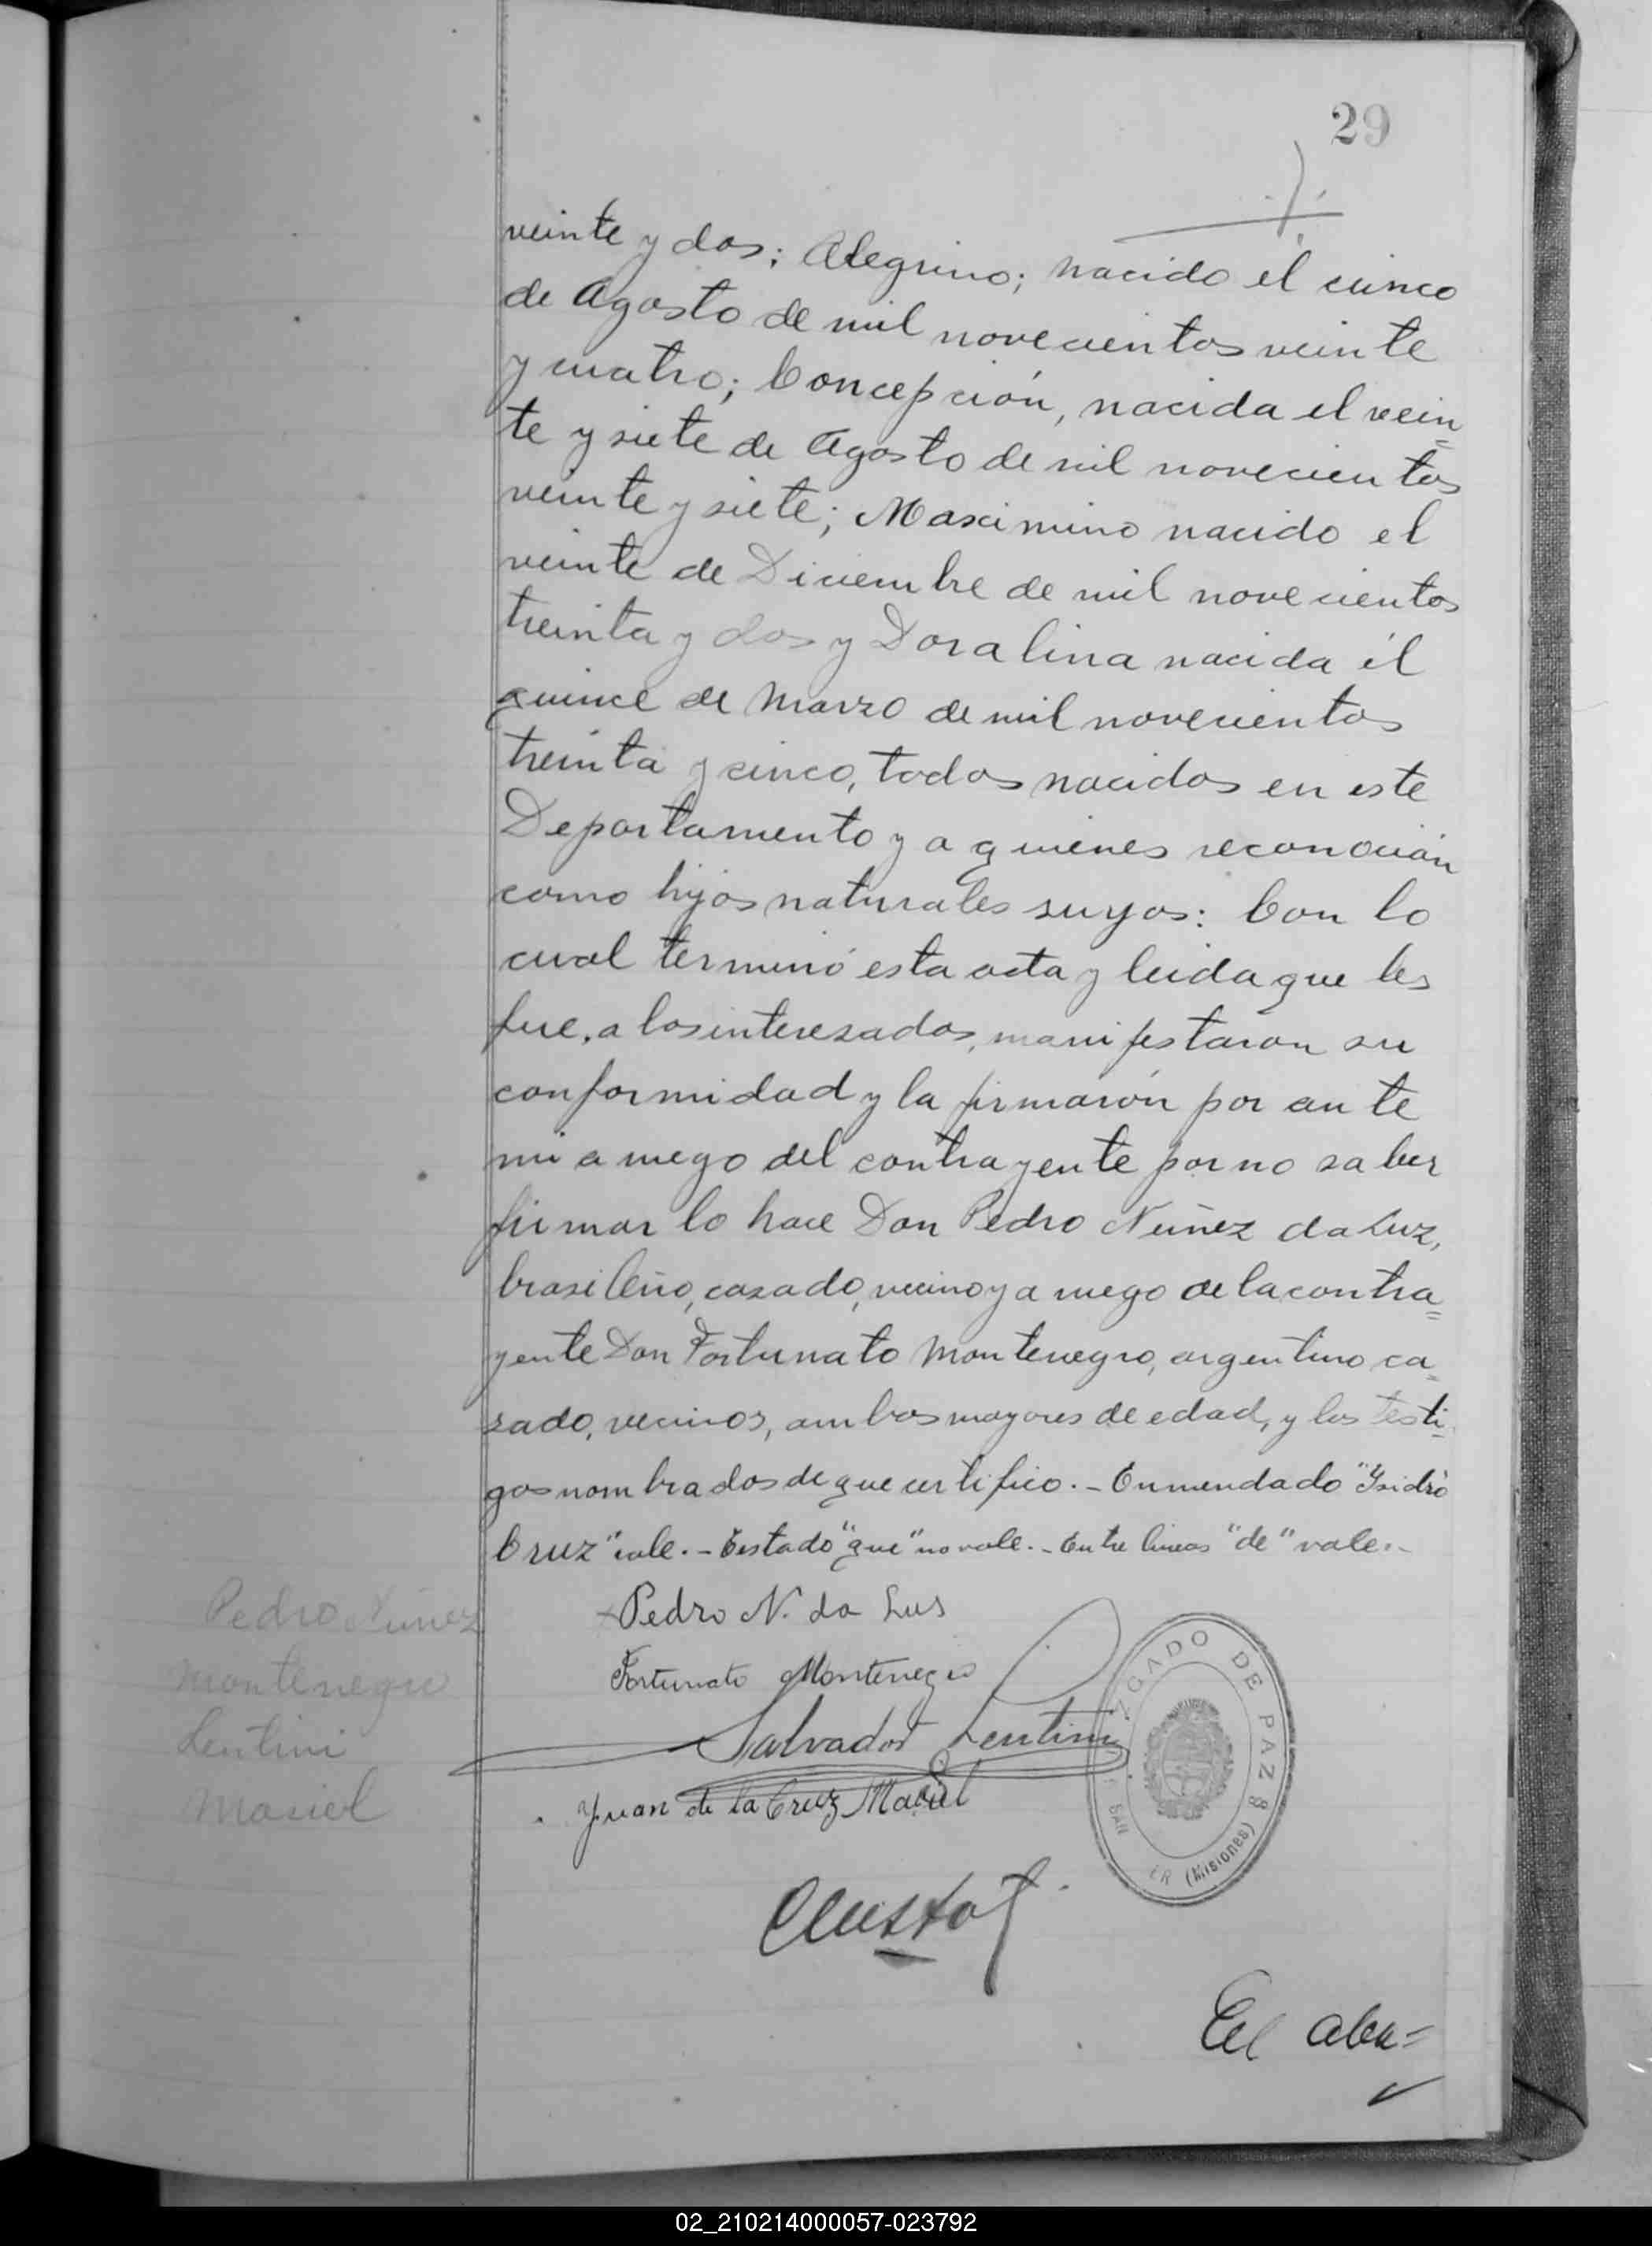 29
veinte y dos; Alegrino; nacido el cinco
de Agosto de mil novecientos veinte
y cuatro; Concepción, nacida el vein
te y siete de Agosto de mil novecientos
veinte y siete; Maximino nacido el
veinte de Diciembre de mil novecientos
treinta y dos y Doralina nacida él
quince de Marzo de mil novecientos
treinta y cinco, todos nacidos en este
Departamento y a quienes reconocian
como hijos naturales suyos: Con lo
cual terminó esta acta y leida que les
fue, a los interesados, manifestaron su
conformidad y la firmarón por ante
mi a ruego del contrayente por no saber
firmar lo hace Don Pedro Nuñez da Luz,
brasileño, casado, vecino y a ruego de la contra=
yente Don Fortunato Montenegro, argentino ca=
sado, vecinos, ambos mayores de edad, y los testi=
gos nombrados de que certifico.- Enmendado "Ysidro
Cruz" vale.- Testado "que" no vale.- Entre lineas "de" vale.-
Pedro Nuñez
Montenegro
Lentini
Maciel
Pedro N. da Lus
Fortunato Montenegro
Salvador Lentini
Juan de la Cruz Maciel
ZGADO DE PAZ
SAN ER (Misiones)
El
02_210214000057-023792